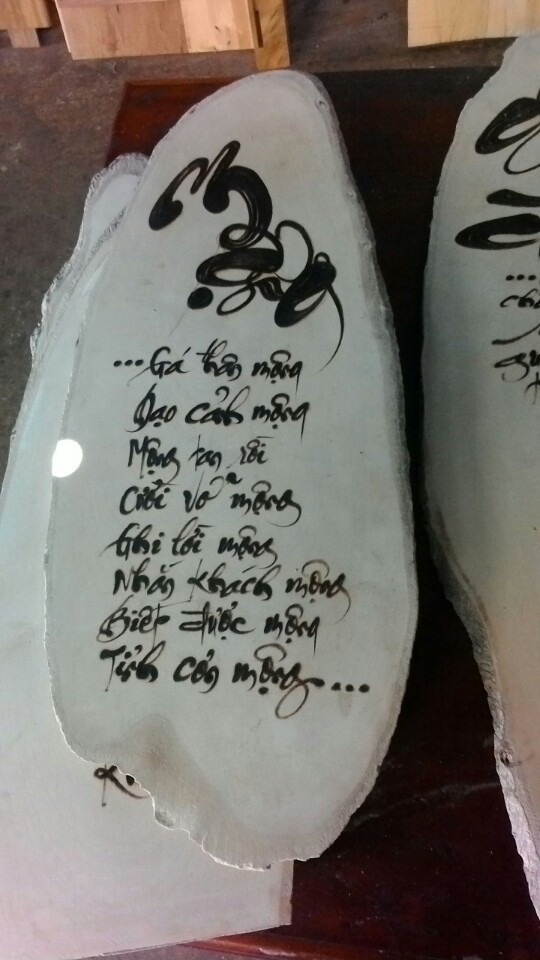 Mộng
...Gá thân mộng
Dạo cảnh mộng
Mộng tan rồi
Cười vỡ mộng
Ghi lời mộng
Nhắn khách mộng
Biết được mộng
Tỉnh cơn mộng...